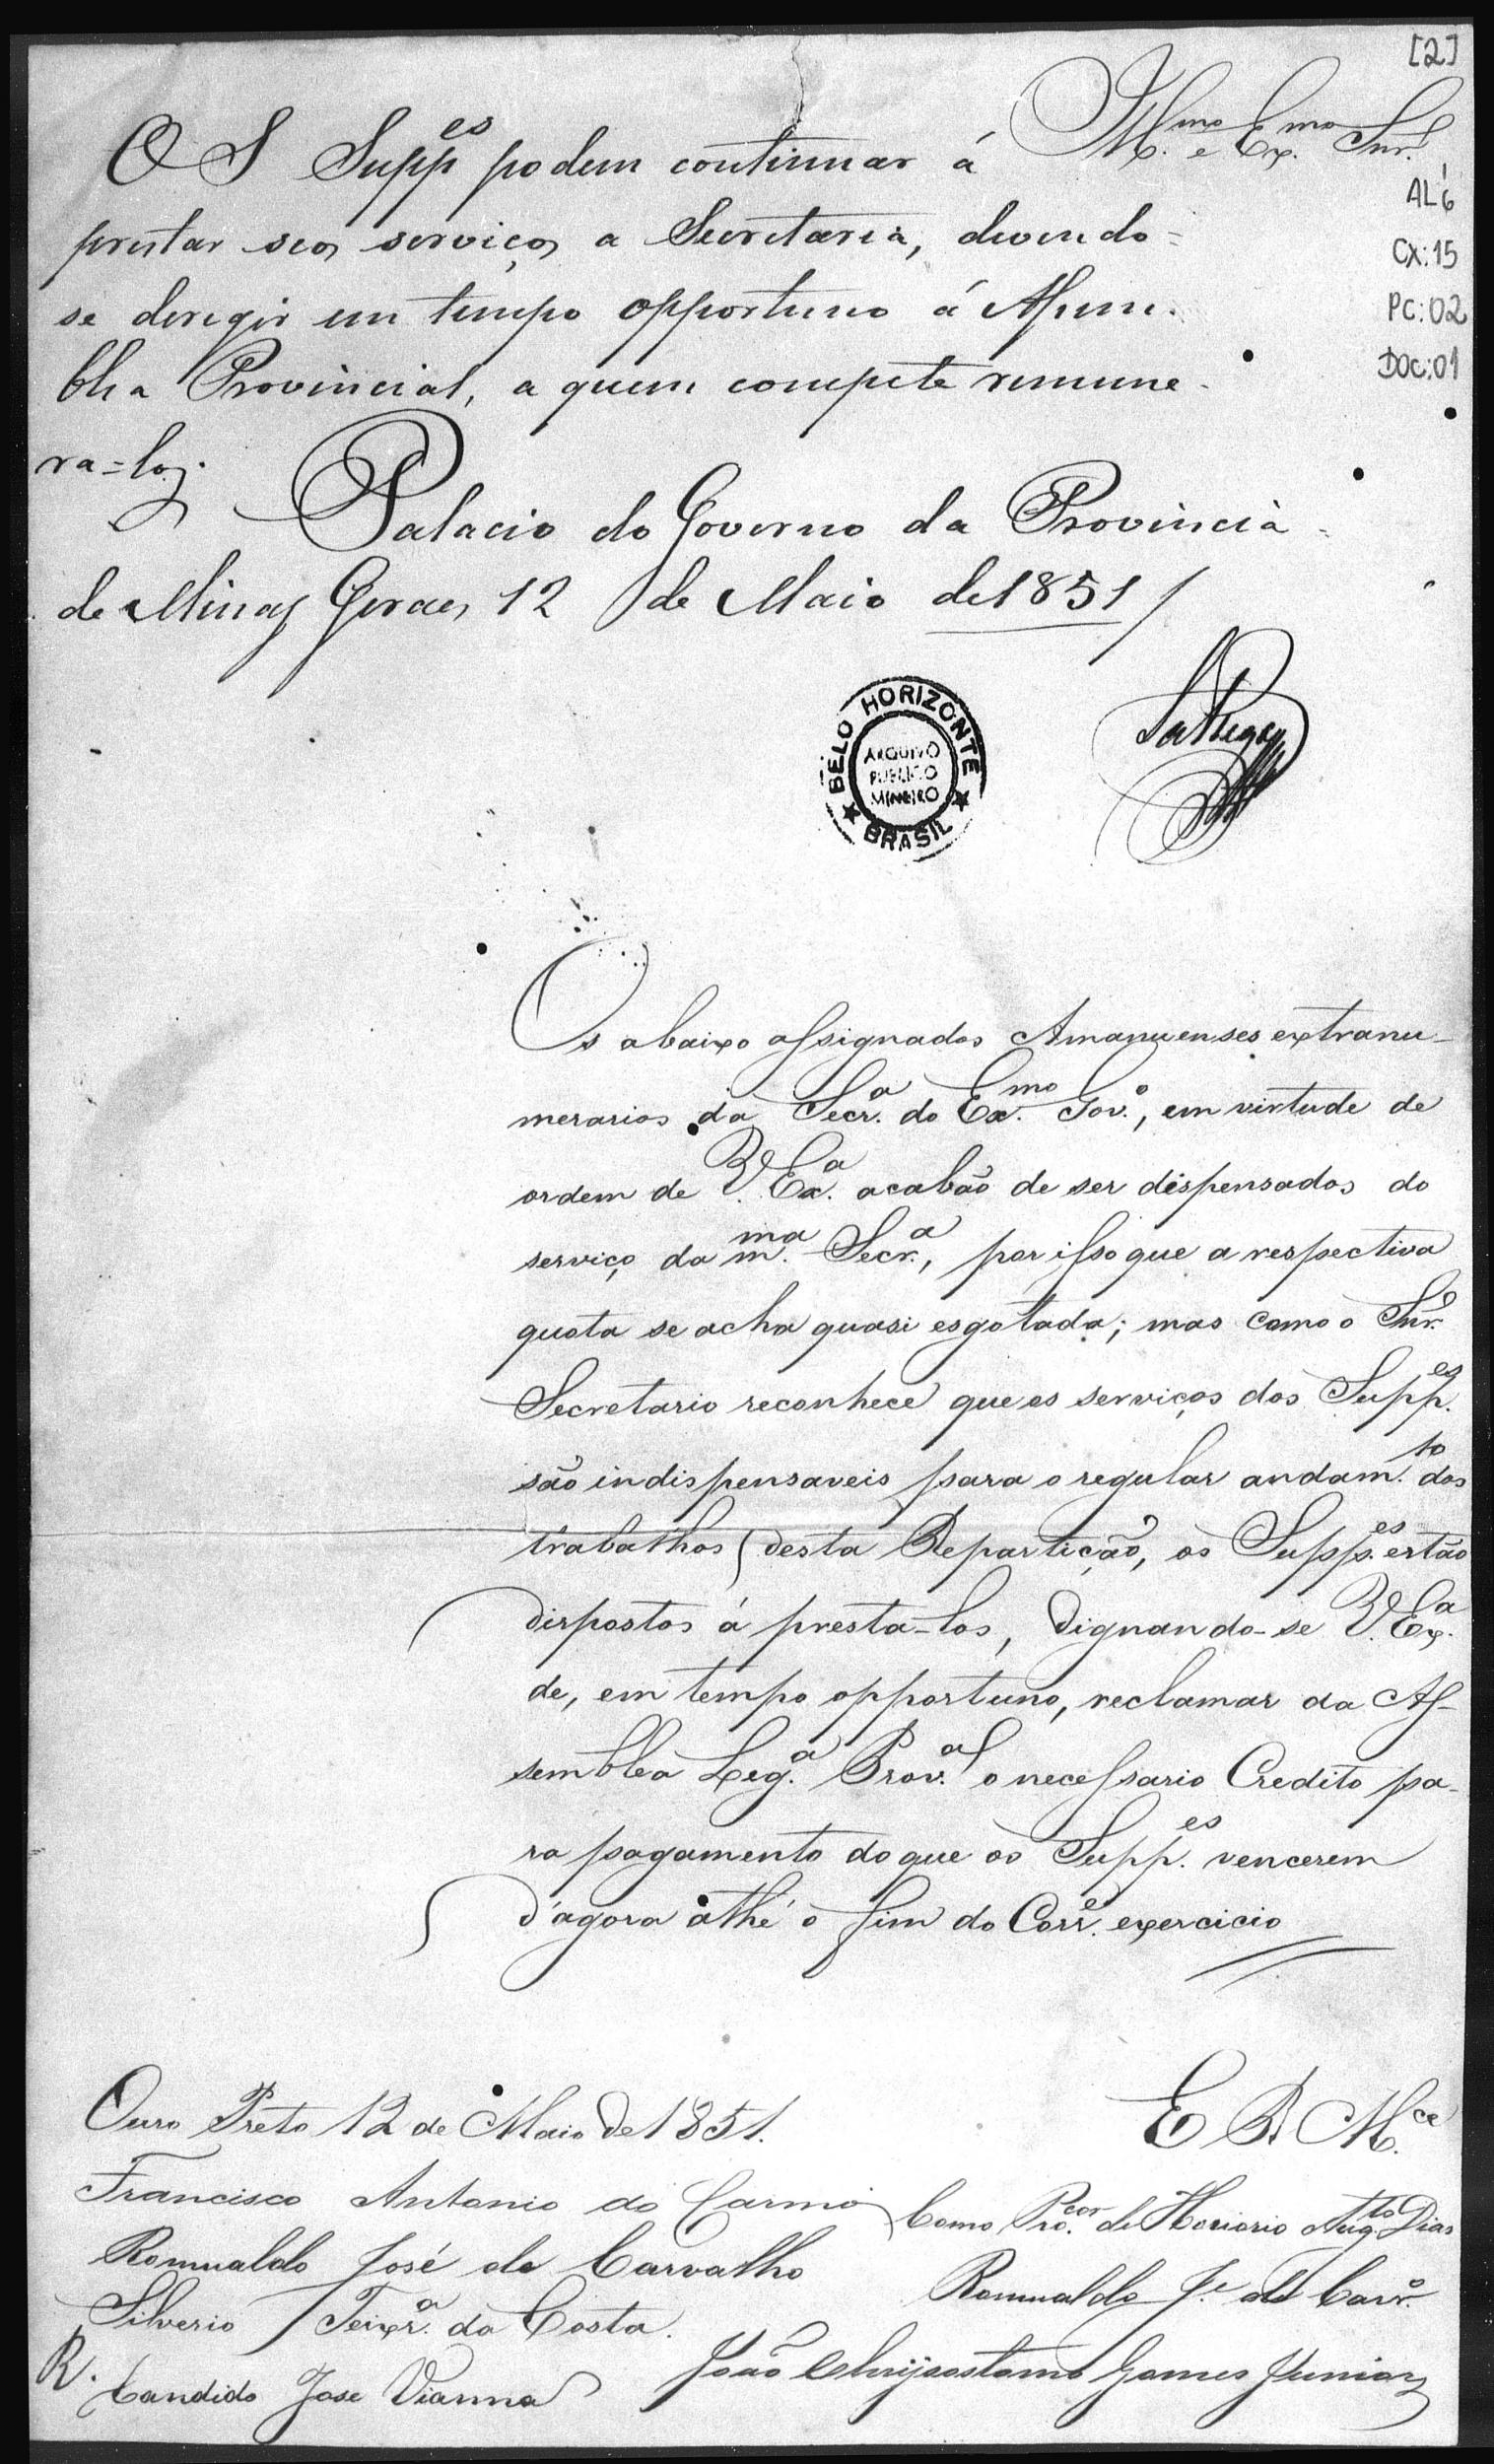 [2]
Ill.mo e Ex.mo Snr.
AL 6
Cx: 15
PC: 02
DOC: 01
OS Supp.es podem continuar á
prestar seos serviços a Secretaria, devendo=
se deregir em tempo opportuno á Assem.
blea Provincial, a quem compete remune-
ra=los.
Palacio do Governo da Provincia
de Minas Geraes 12 de Maio de 1851
BELO HORIZONTE
ARQUIVO
PUBLICO
MINEIRO
★ BRASIL ★
Os abaixo assignados Amanuenses extranu-
merarios da Secr.a do Ex.mo Gov.o, em virtude de
ordem de V. Ex.a acabão de ser dispensados do
serviço da m.ma Secr.a, por isso que a respectiva
quota se acha quasi esgotada; mas como o Snr.
Secretario reconhece que os serviços dos Supp.es
são indispensaveis para o regular andam.to dos
trabalhos desta Repartição, os Supp.es estão
dispostos á presta-los, dignando-se V. Ex.a
de, em tempo opportuno, reclamar da As-
semblea Leg.a Prov.al o necessario Credito pa-
ra pagamento do que os Supp.es vencerem
d'agora athé o fim do Corr.e exercicio
E R M.ce
Ouro Preto 12 de Maio de 1851.
Francisco Antonio do Carmo
Romualdo José de Carvalho
Silverio Teixr.a da Costa.
R. Candido Jose Vianna
Como Pro.cor de Honorio Aug.to Dias
Romualdo J.e de Carv.o
João Chrijsostomo Gomes Junior